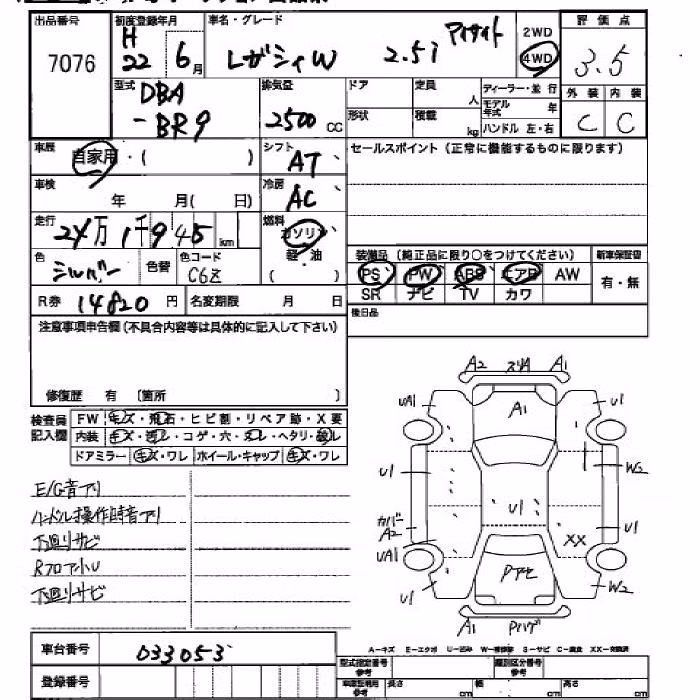 出品番号 初度登録年月 車名・グレード 評価点
7076 H 22 6月 レガシィW 2.5i アイサイト 2WD 4WD 3.5
型式 DBA -BR9 排気量 2500 CC ドア 定員 人 ディーラー・並行 外装 内装
形状 積載 kg モデル年式 年 ハンドル 左・右 C C
車歴 自家用・( ) シフト AT セールスポイント(正常に機能するものに限ります)
車検 年 月( 日) 冷房 AC
走行 24万1千945km 燃料 ガソリン
軽・油
( )
色 シルバー 色替 色コード C6Z
装備品(純正品に限り○をつけてください) 新車保証書
PS PW ABS エアB AW 有・無
SR ナビ TV カワ
R券 14820円 名変期限 月 日 後日品
注意事項申告欄(不具合内容等は具体的に記入して下さい)
修復歴 有 〔箇所 〕
検査員記入欄 FW キズ・飛石・ヒビ割・リペア跡・X要
内装 キズ・汚レ・コゲ・穴・スレ・ヘタリ・破レ
ドアミラー キズ・ワレ ホイール・キャップ キズ・ワレ
E/G音アリ
ハンドル操作時音アリ
下廻りサビ
下廻りサビ
A2 スリ A1
UA1 A1 U1
U1 W2
U1
カバー A2 U1
UA1 XX
U1 W2
A1
車台番号 033053
登録番号
A-キズ E-エクボ U-凹み W-補修跡 S-サビ C-腐食 XX-交換済
型式指定番号 参考 類別区分番号 参考
車庫証明用 参考 長さ cm 幅 cm 高さ cm